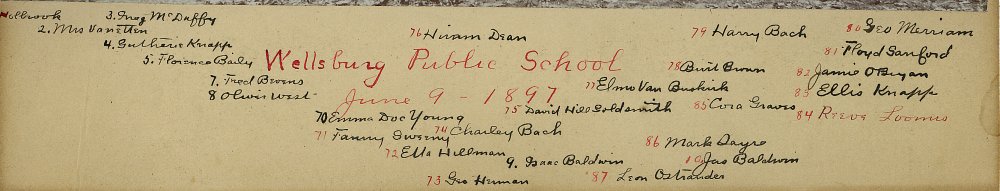 Holbrook
2. Mrs Van Etten
3. Inog McDuffy
4. Gutherie Knapp
5. Florence Baily
7. Fred Brens
8 Oliver West
Wellsburg Public School
June 9 - 1897
76 Hiram Dean
79 Harry Bach
80 Geo Merriam
81 Floyd Sanford
78 Burt Brown
82 Jamie O Bryan
77 Elmo Van Buskirk
83 Ellis Knapp
75 David Hill Goldsmith
85 Cora Graves
84 Reeva Loomis
70 Emma Doc Young
71 Fanny Sweeny
74 Charley Bach
72 Ella Hillman
86 Mark Sayre
9. Isaac Baldwin
10 Jas Baldwin
73 Geo Herman
'87 Leon Ostrander